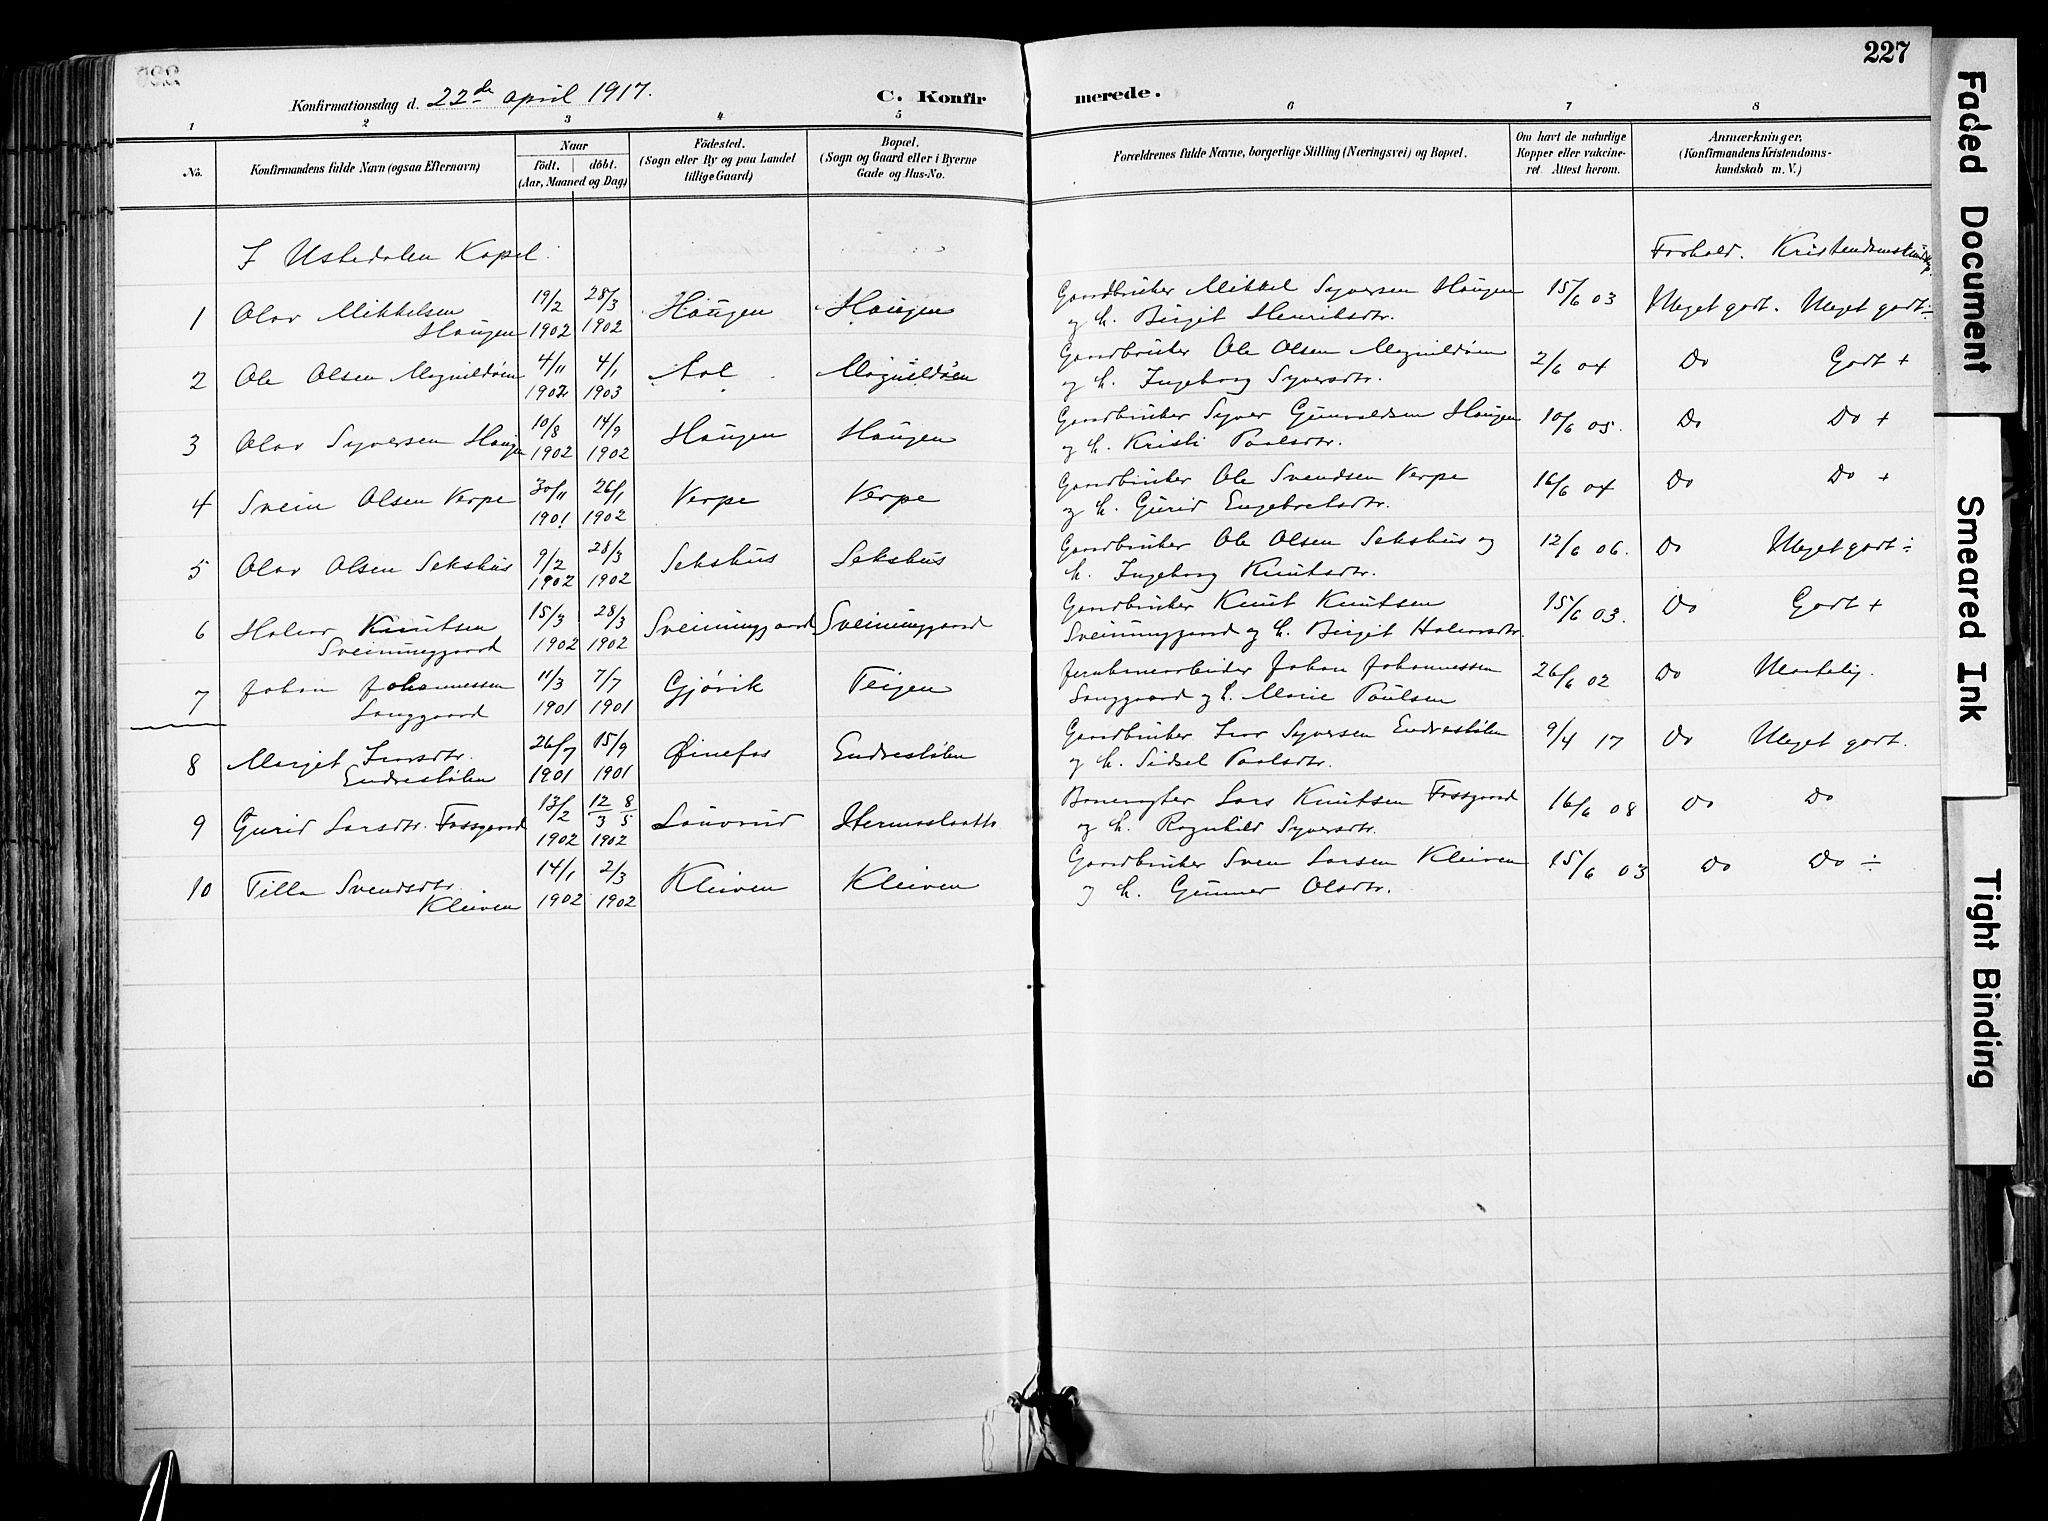 227
Konfirmationsdag d. 22de april 1917.
C. Konfirmerede.
1 2 3 4 5 6 7 8
No.
Konfirmandens fulde Navn (ogsaa Efternavn)
Naar
födt. döbt.
(Aar, Maaned og Dag)
Födested.
(Sogn eller By og paa Landet
tillige Gaard)
Bopæl.
(Sogn og Gaard eller i Byerne
Gade og Hus-No.
Forældrenes fulde Navne, borgerlige Stilling (Næringsvei) og Bopæl.
Om havt de naturlige
Kopper eller vakcine-
ret. Attest herom.
Anmærkninger.
(Konfirmandens Kristendoms-
kundskab m. V.)
I Ustedalen Kapel.
Forhold. Kristendomskundskap.
1 Olav Mikkelsen Haugen 19/2 1902 28/3 1902 Haugen Haugen Gardbruker Mikkel Syversen Haugen
og h. Birgit Henriksdtr. 15/6 03 Meget godt. Meget godt ÷
2 Ole Olsen Magnildøen 4/11 1902 4/1 1903 Aal Magnildøen Gardbruker Ole Olsen Magnildøen
og h. Ingeborg Syversdtr. 2/6 04 Do Godt +
3 Olav Syversen Haugen 10/8 1902 14/9 1902 Haugen Haugen Gardbruker Syver Gunvaldsen Haugen
og h. Kristi Paalsdtr. 10/6 05. Do Do +
4 Svein Olsen Verpe 30/11 1901 26/1 1902 Verpe Verpe Gardbruker Ole Svendsen Verpe
og h. Gurid Engebretsdtr. 16/6 04 Do Do +
5 Olav Olsen Sekshus 9/2 1902 28/3 1902 Sekshus Sekshus Gardbruker Ole Olsen Sekshus og
h. Ingeborg Knutsdtr. 12/6 06. Do Meget godt ÷
6 Halvor Knutsen Sveinungaard 15/3 1902 28/3 1902 Sveinungaard Sveinungaard Gardbruker Knut Knutsen
Sveinungaard og h. Birgit Halvorsdtr. 15/6 03. Do Godt +
7 Johan Johannessen Langgaard 11/3 1901 7/7 1901 Gjøvik Teigen Jernbanearbeider Johan Johannessen
Langgaard og h. Marie Paulsen 26/6 02 Do Maadelig.
8 Margit Ivarsdtr. Endrestølen 26/7 1901 15/9 1901 Øinefos Endrestølen Gardbruker Ivar Syversen Endrestølen
og h. Sidsel Paalsdtr. 9/4 17 Do Meget godt.
9 Gurid Larsdtr. Fossgaard 13/2 1902 12/3 8/5 1902 Lauvrud Hermoslaatto Banevogter Lars Knutsen Fossgaard
og h. Ragnhild Syversdtr. 16/6 08 Do Do
10 Tilla Svendsdtr. Kleiven 14/1 1902 2/3 1902 Kleiven Kleiven Gardbruker Sven Larsen Kleiven
og h. Gunnor Olsdtr. 15/6 03 Do Do ÷
Faded Document
Smeared Ink
Tight Binding